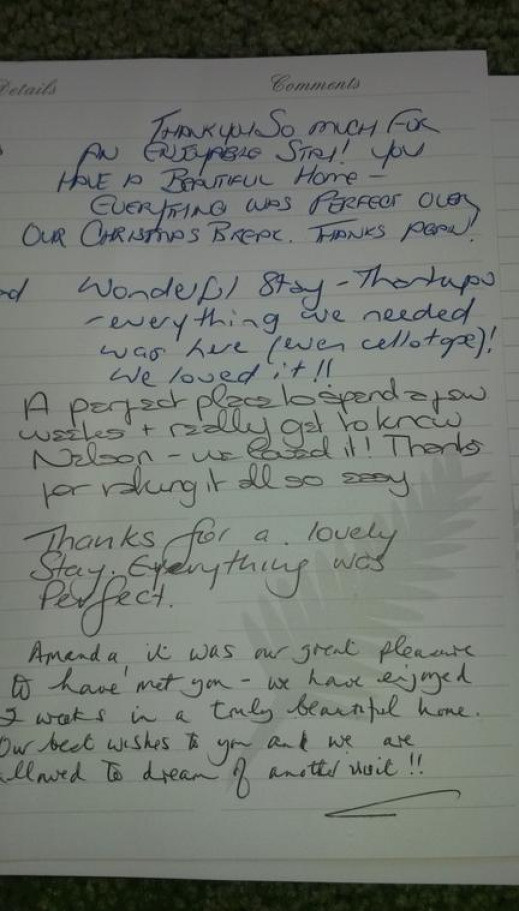 Details Comments
THANKYOU SO MUCH FOR
AN ENJOYABLE STAY! YOU
HAVE A BEAUTIFUL HOME -
EVERYTHING WAS PERFECT OVER
OUR CHRISTMAS BREAK. THANKS AGAIN!
Wonderful Stay - Thankyou
- everything we needed
was here (even cellotape)!
We loved it!!
A perfect place to spend a few
weeks + really get to know
Nelson - we loved it! Thanks
for making it all so easy
Thanks for a lovely
Stay. Everything was
Perfect.
Amanda, it was our great pleasure
to have met you - we have enjoyed
2 weeks in a truly beautiful home.
Our best wishes to you and we are
allowed to dream of another visit!!